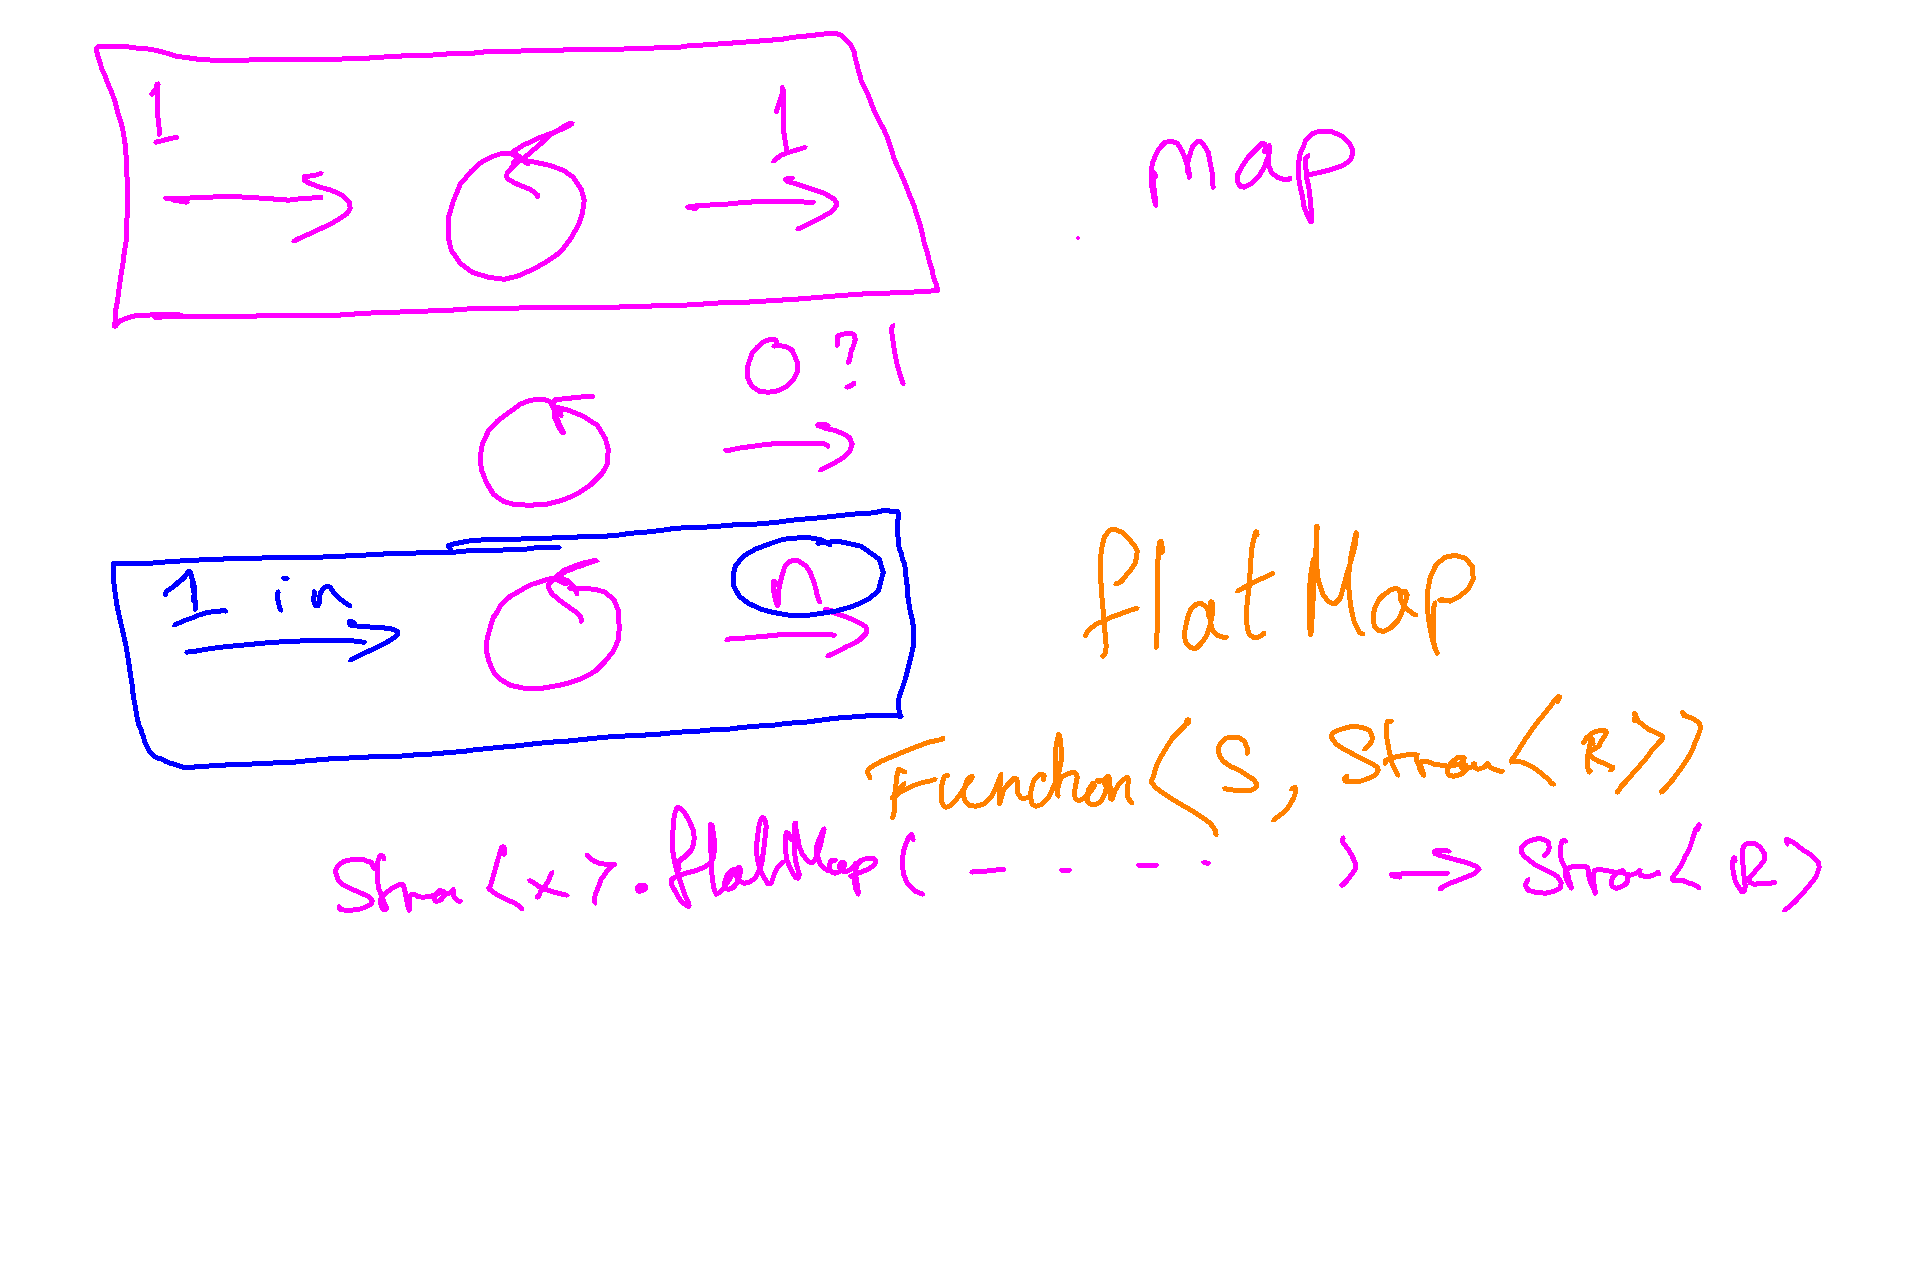 1 1 map
0 ? 1
1 in n flatMap
Function<S, Stream<R>>
Stream<x>.flatMap( - - - - ) → Stream<R>